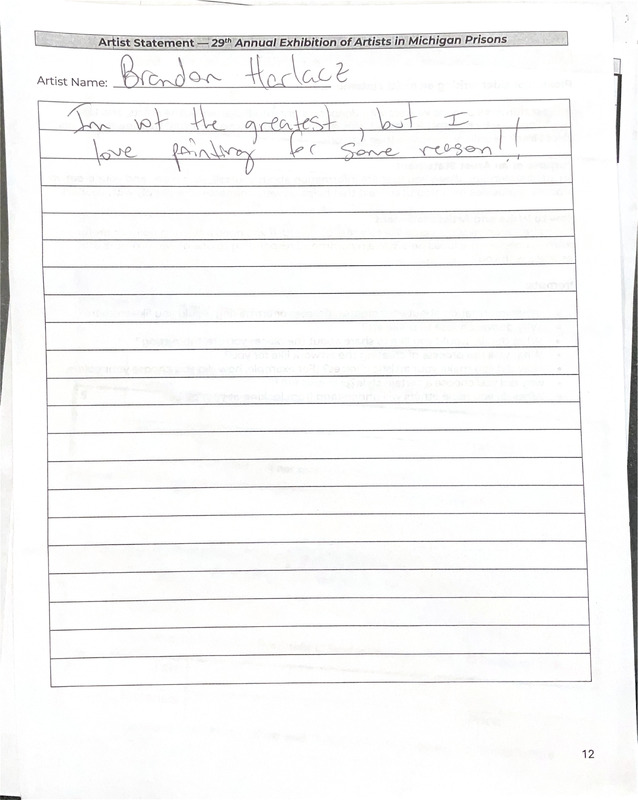 Artist Statement — 29th Annual Exhibition of Artists in Michigan Prisons
Artist Name: Brandon Harlacz
Im not the greatest, but I
love painting for some reason!!
12